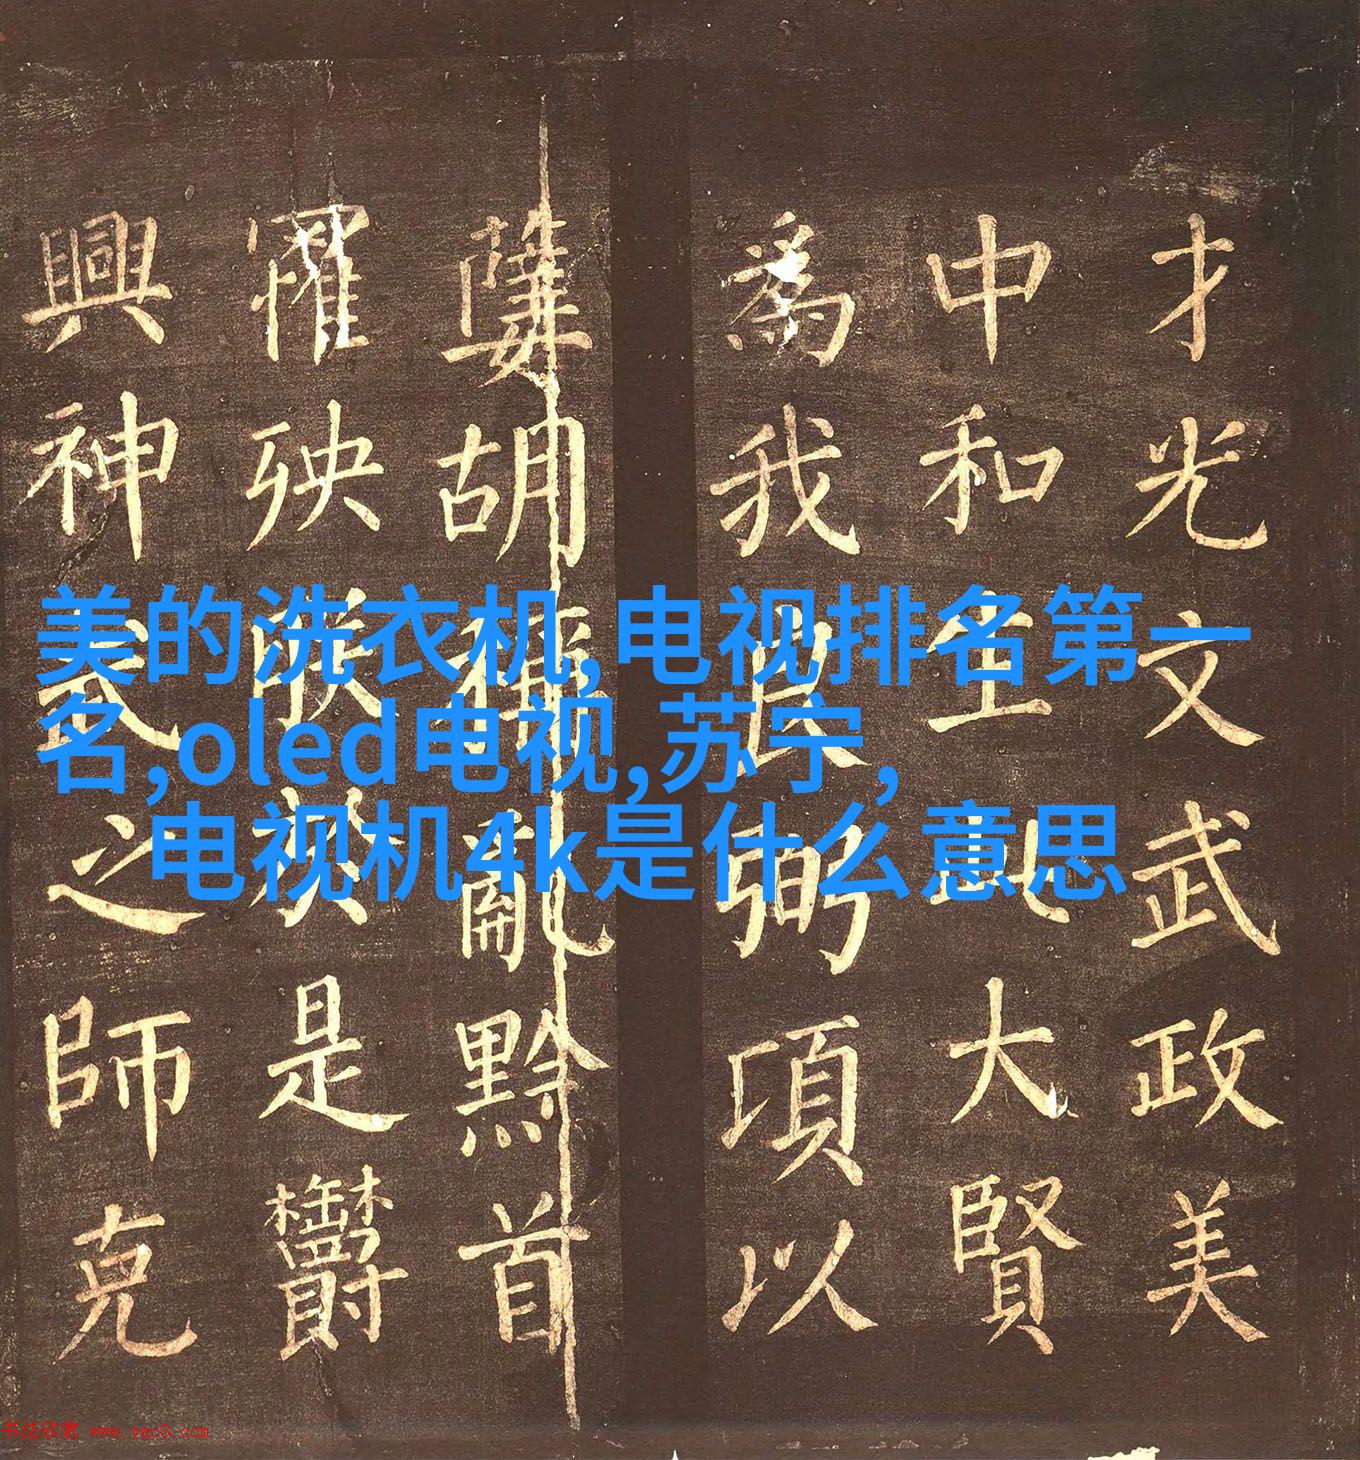 才光文武政美
中和生此大賢
爲我良弼項以
胡稱亂黔首
罹殃朕於是鬱
興神武之師克
美的洗衣机,电视排名第一
名,oled电视,苏宁，
电视机4k是什么意思
书法欣赏 www.yac8.com